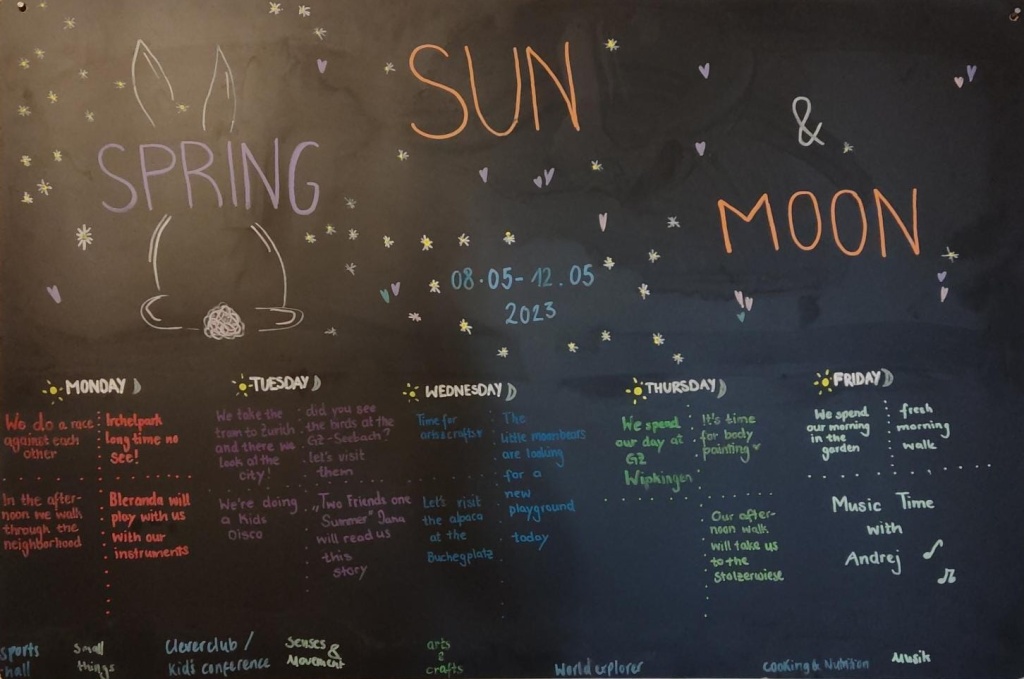 SPRING
SUN
&
MOON
08.05-12.05
2023
MONDAY
We do a race
against each
other
Irchelpark
long time no
see!
In the after-
noon we walk
through the
neighborhood
Bleranda will
play with us
with our
instruments
TUESDAY
We take the
tram to Zurich
and there we
look at the
city!
did you see
the birds at the
GZ-Seebach?
let's visit
them
We're doing
a Kids
Disco
"Two Friends one
Summer" Jana
will read us
this
story
WEDNESDAY
Time for
arts&crafts
The
little moonbears
are looking
for a
new
playground
today
Let's visit
the alpaca
at the
Bucheggplatz
THURSDAY
We spend
our day at
GZ
Wipkingen
It's time
for body
painting
Our after-
noon walk
will take us
to the
Stolzerwiese
FRIDAY
We spend
our morning
in the
garden
fresh
morning
walk
Music Time
with
Andrej
sports
hall
Small
things
Cleverclub /
Kid's conference
Senses
&
Movement
arts
&
crafts
World explorer
Cooking & Nutrition
Musik